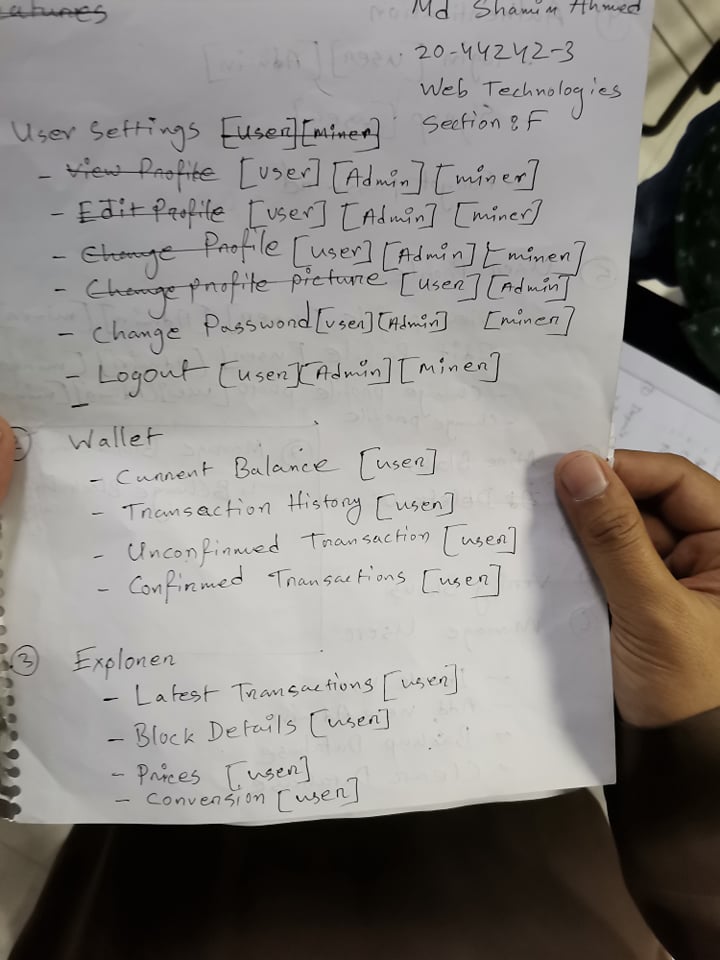 atures
Md Shamim Ahmed
20-44242-3
Web Technologies
Section : F
User Settings [User] [miner]
- View Profile [user] [Admin] [miner]
- Edit Profile [user] [Admin] [miner]
- Change Profile [user] [Admin] [miner]
- Change profile picture [user] [Admin]
- Change Password [user] [Admin] [miner]
- Logout [user] [Admin] [miner]
-
Wallet
- Current Balance [user]
- Transaction History [user]
- Unconfirmed Transaction [user]
- Confirmed Transactions [user]
③ Explorer
- Latest Transactions [user]
- Block Details [user]
- Prices [user]
- Conversion [user]